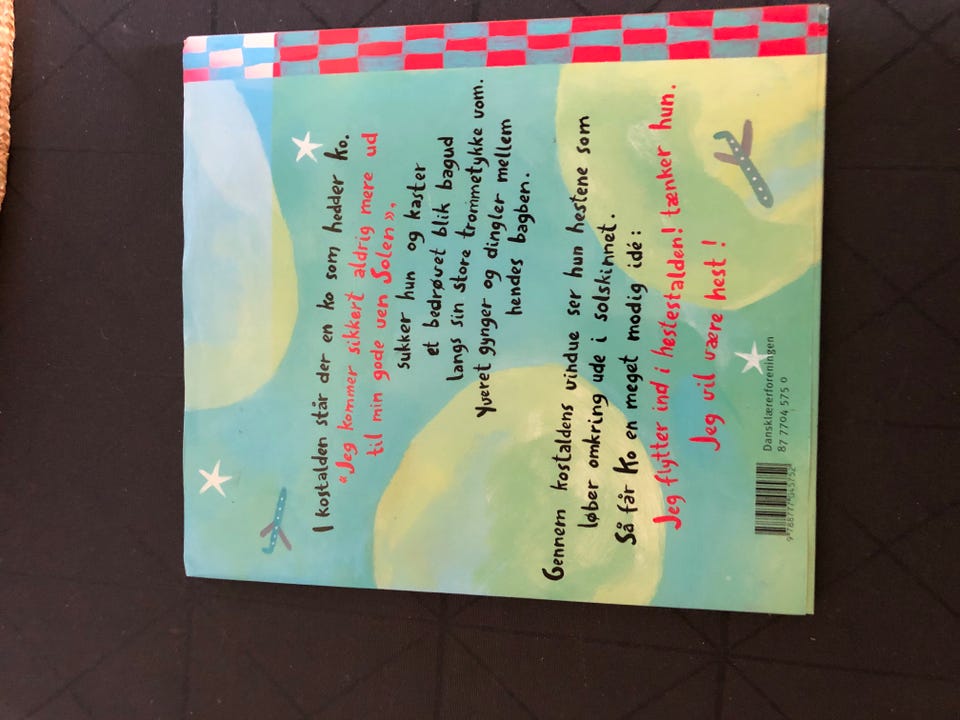 I kostalden står der en ko som hedder Ko.
"Jeg kommer sikkert aldrig mere ud
til min gode ven Solen»,
sukker hun og kaster
et bedrøvet blik bagud
langs sin store trommetykke vom.
Yveret gynger og dingler mellem
hendes bagben.
Gennem kostaldens vindue ser hun hestene som
løber omkring ude i solskinnet.
Så får Ko en meget modig idé:
Jeg flytter ind i hestestalden! tænker hun.
Jeg vil være hest!
Dansklærerforeningen
87 7704 575 0
9788777045752